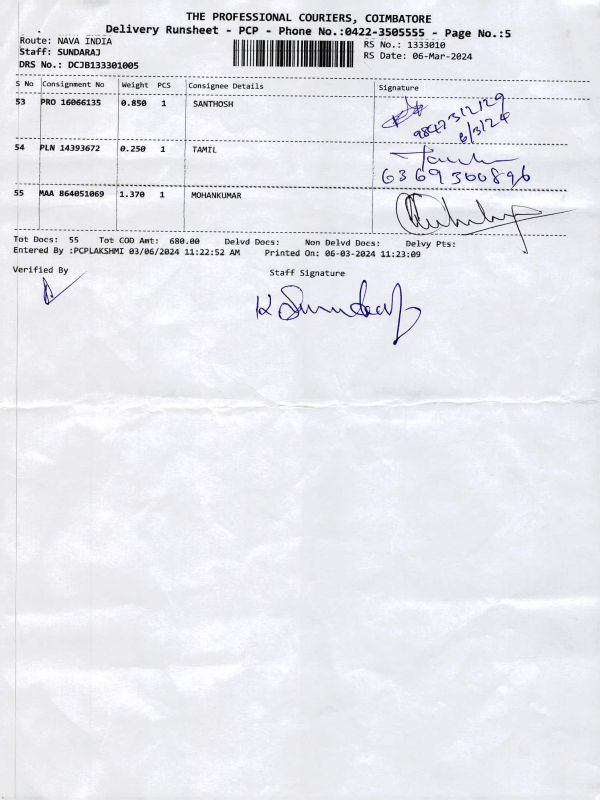 THE PROFESSIONAL COURIERS, COIMBATORE
Delivery Runsheet - PCP - Phone No.:0422-3505555 - Page No.:5
Route: NAVA INDIA
RS No.: 1333010
Staff: SUNDARAJ
RS Date: 06-Mar-2024
DRS No.: DCJB133301005
S No Consignment No Weight PCS Consignee Details Signature
53 PRO 16066135 0.850 1 SANTHOSH
9847312129
6/3/24
54 PLN 14393672 0.250 1 TAMIL
6369300896
55 MAA 864051069 1.370 1 MOHANKUMAR
Tot Docs: 55 Tot COD Amt: 680.00 Delvd Docs: Non Delvd Docs: Delvy Pts:
Entered By :PCPLAKSHMI 03/06/2024 11:22:52 AM Printed On: 06-03-2024 11:23:09
Verified By
Staff Signature